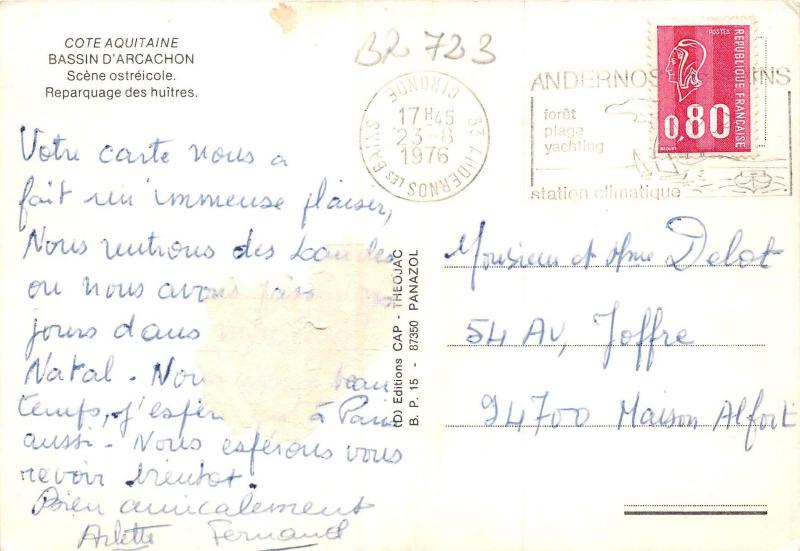 COTE AQUITAINE
BASSIN D'ARCACHON
Scène ostréicole.
Reparquage des huîtres.
B2 723
33 ANDERNOS LES BAINS
GIRONDE
17H45
23-8
1976
ANDERNOS INS
forêt
plage
yachting
station climatique
POSTES
REPUBLIQUE FRANÇAISE
0,80
Votre carte nous a
fait un immense plaisir,
Nous rentrons des Landes
ou nous avons
jours dans
Natal - Nou beau
temps, j'espèr à Paris
aussi - Nous espérons vous
revoir bientot.
Bien amicalement
Arlette Fernand
(D) Editions CAP - THEOJAC
B. P. 15 - 87350 PANAZOL
Monsieur et Mme Delot
54 Av, Joffre
94700 Maison Alfort